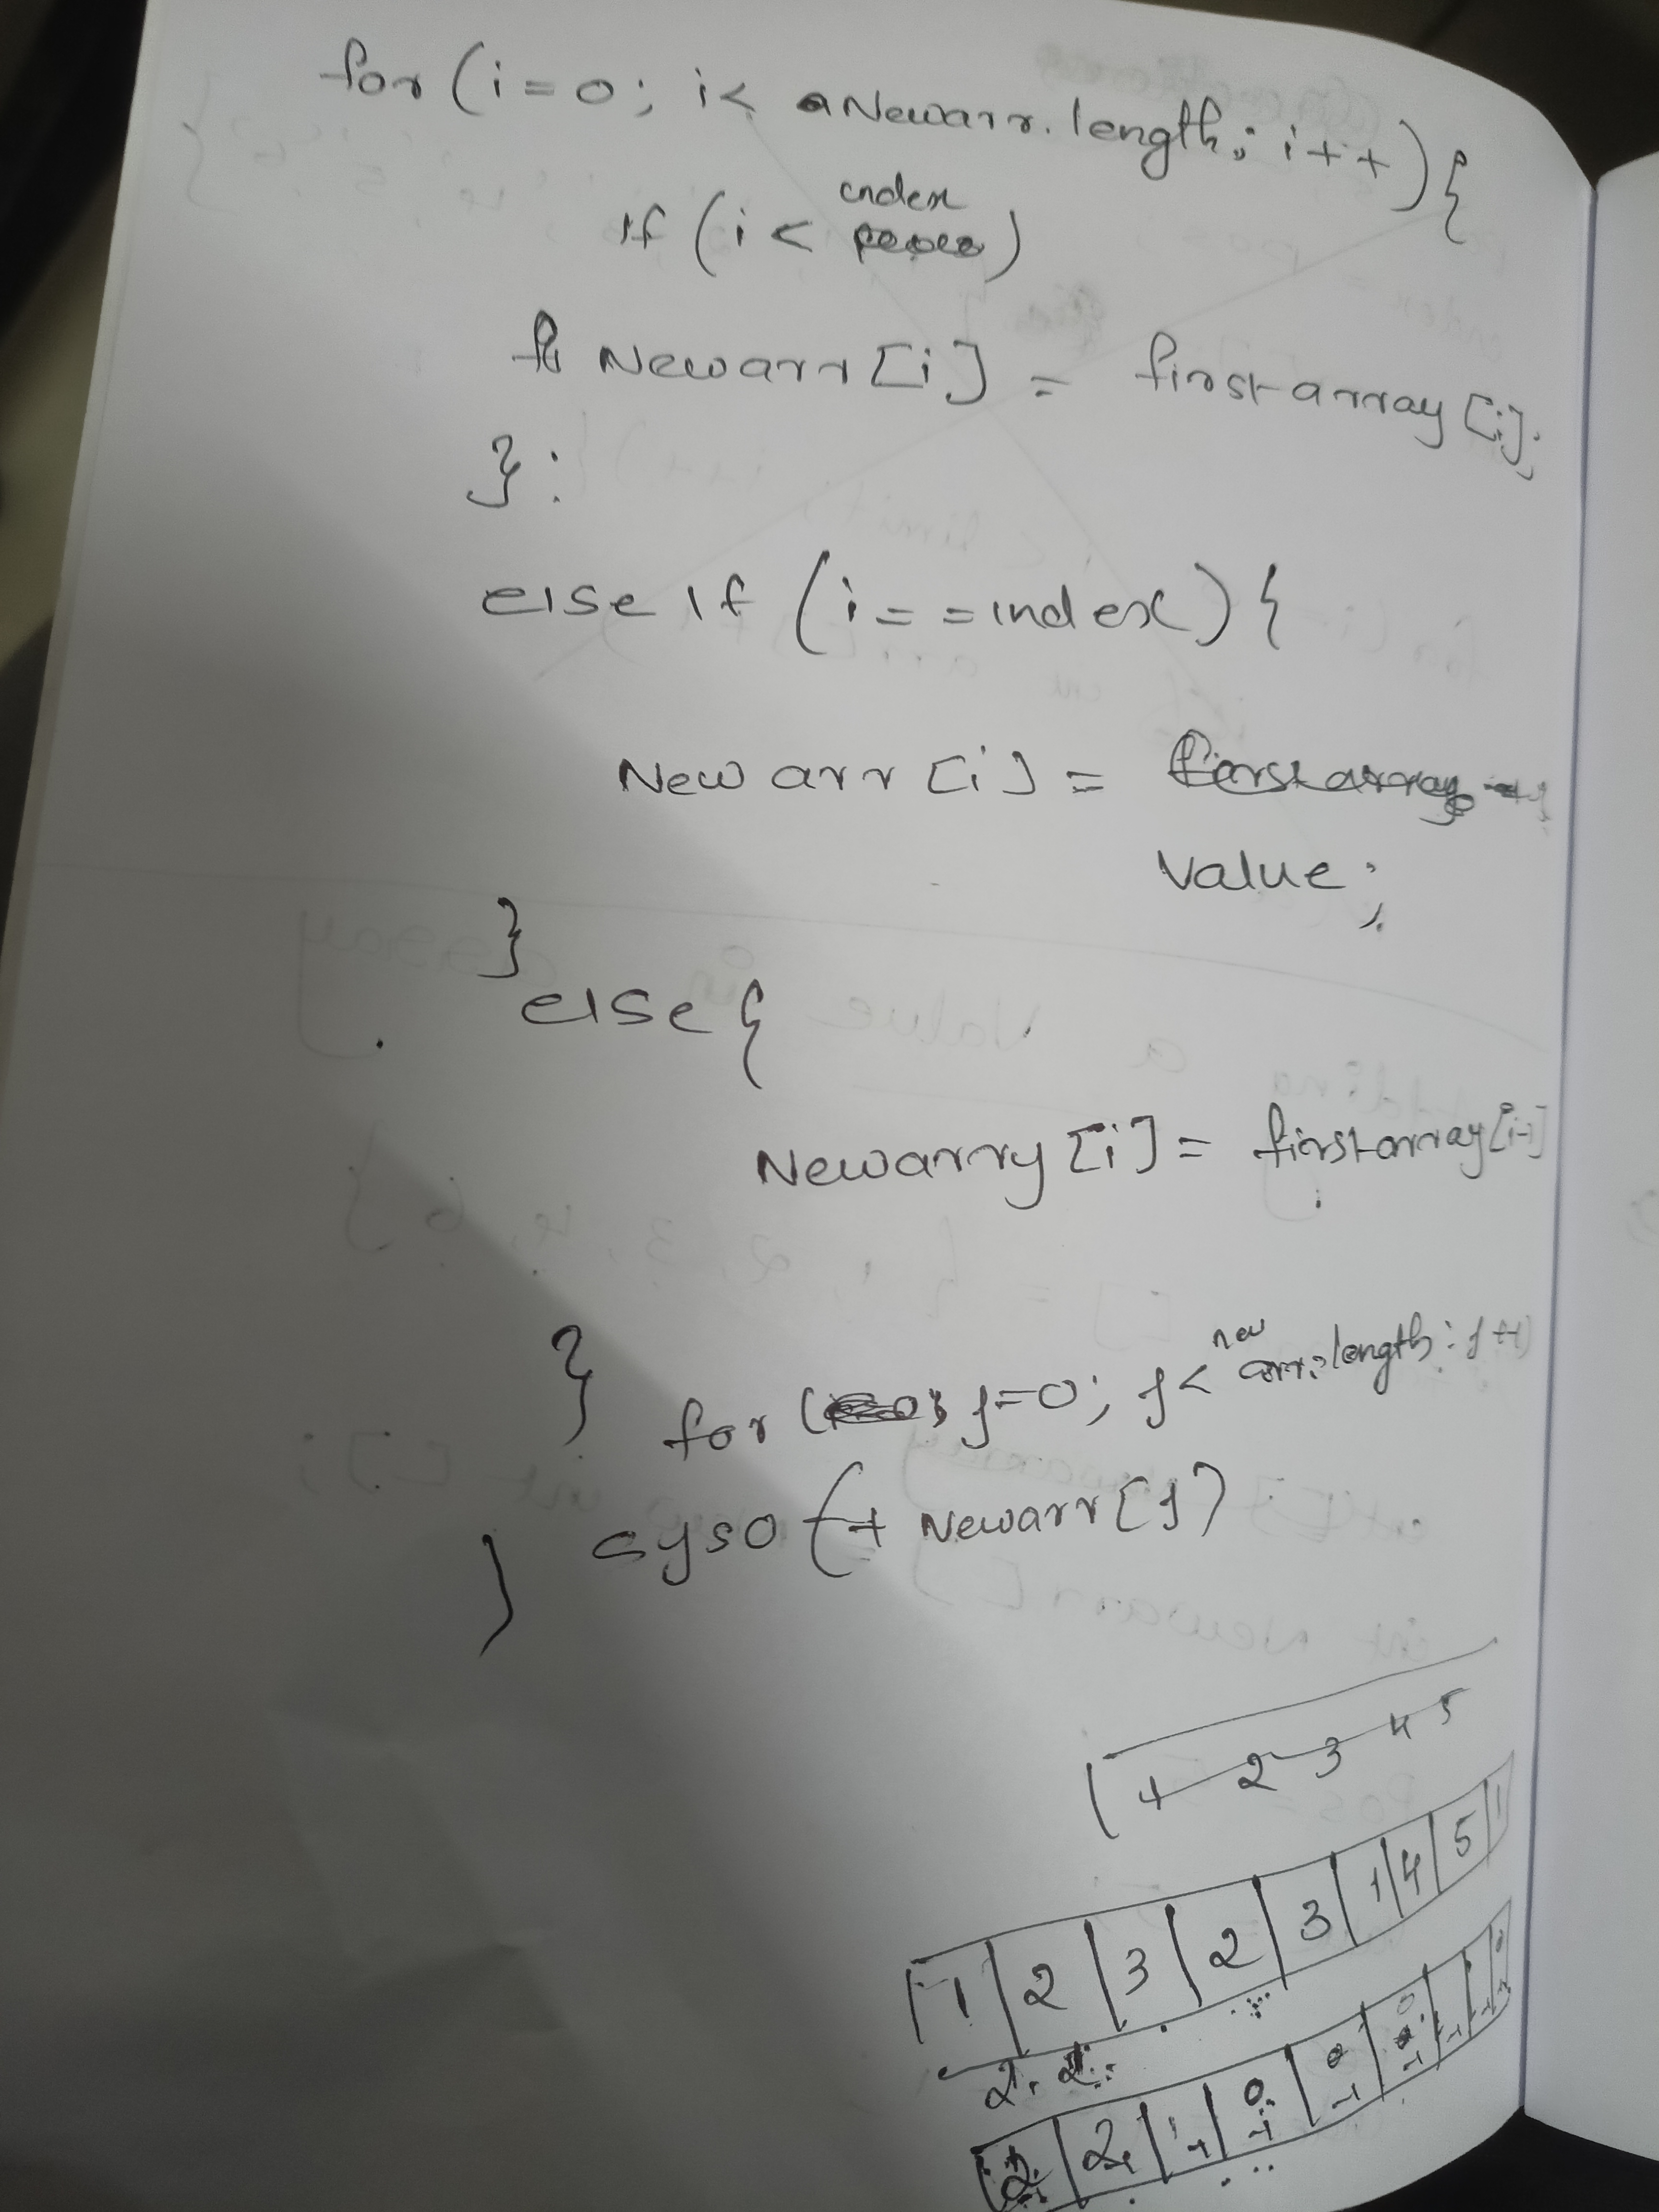 for (i=0; i< Newarr.length; i++){
index
if (i< )
Newarr[i] = firstarray[i];
} :
else if (i==index){
Newarr[i] =
Value;
}
else {
Newarry[i] = firstarray[i-1]
;
} for ( j=0; j< new arr.length; j++)
syso (+ Newarr[j)
}
1 2 3 4 5
1 2 3 2 3 1 4 5 1
2.
2 2 1 0